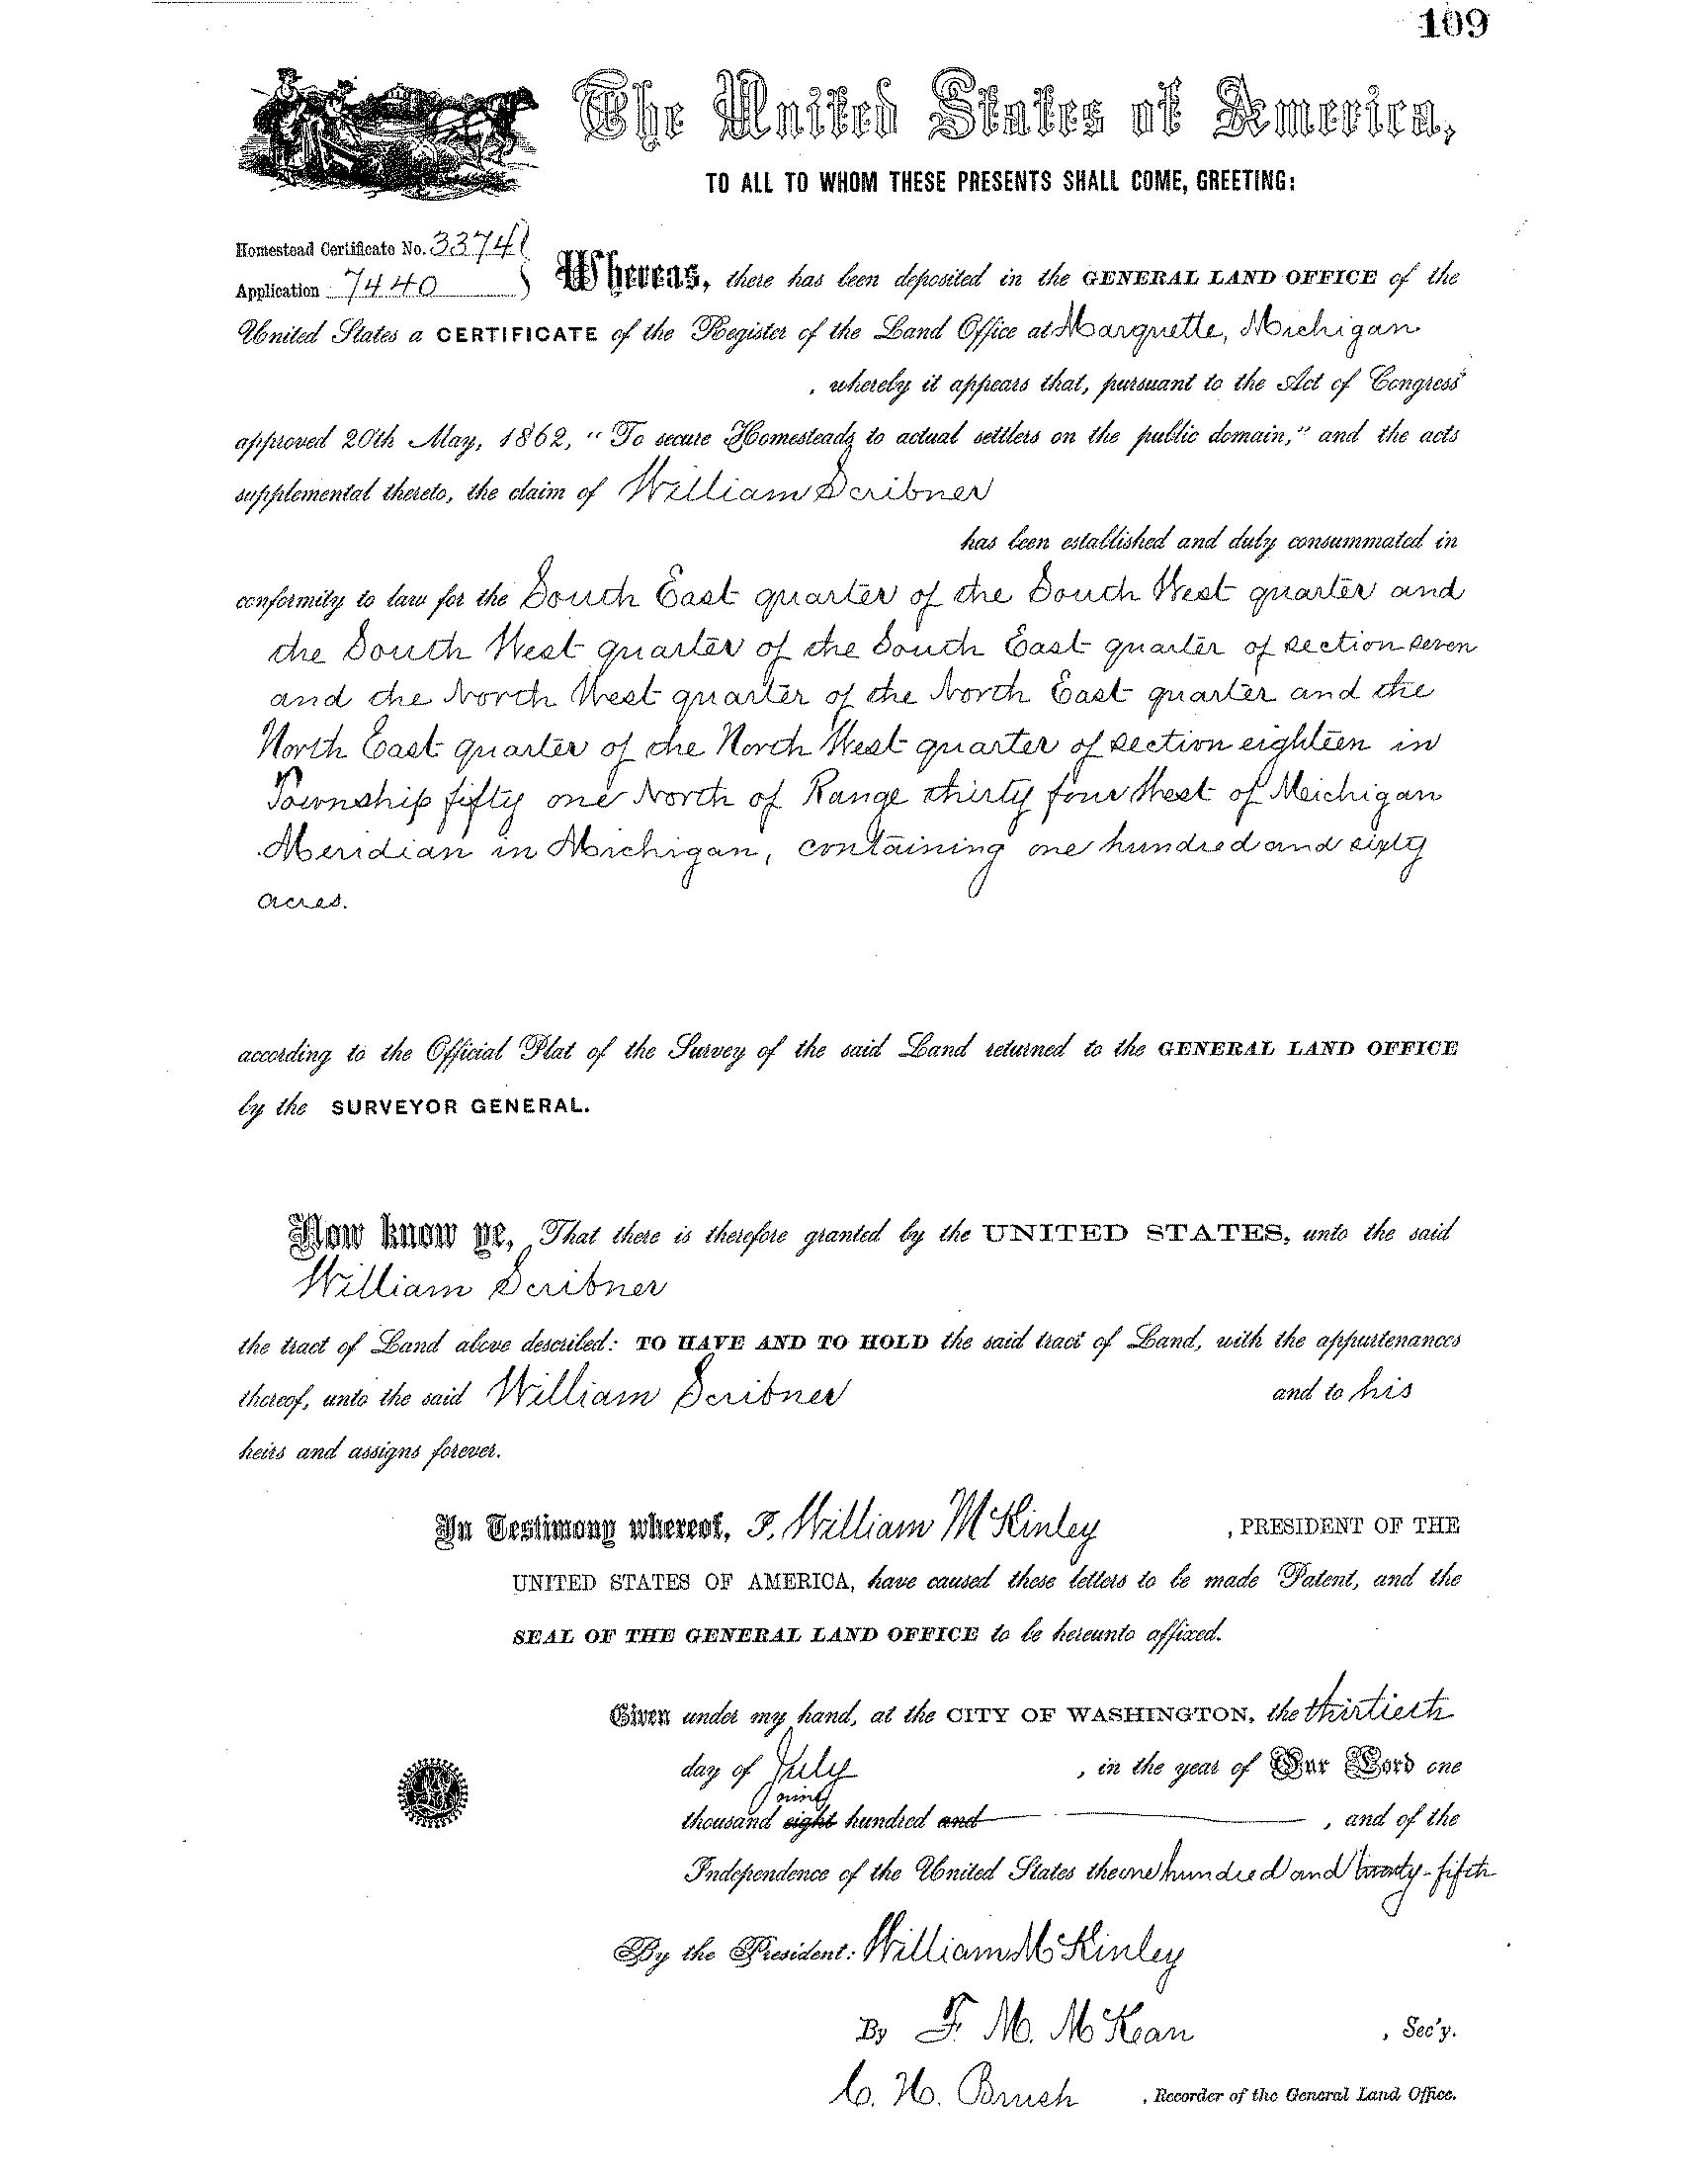 109
The United States of America,
TO ALL TO WHOM THESE PRESENTS SHALL COME, GREETING:
Homestead Certificate No. 3374
Application 7440
Whereas, there has been deposited in the GENERAL LAND OFFICE of the
United States a CERTIFICATE of the Register of the Land Office at Marquette, Michigan
, whereby it appears that, pursuant to the Act of Congress
approved 20th May, 1862, "To secure Homesteads to actual settlers on the public domain," and the acts
supplemental thereto, the claim of William Scribner
has been established and duly consummated in
conformity to law for the South East quarter of the South West quarter and
the South West quarter of the South East quarter of section seven
and the North West quarter of the North East quarter and the
North East quarter of the North West quarter of section eighteen in
Township fifty one North of Range thirty four West of Michigan
Meridian in Michigan, containing one hundred and sixty
acres.
according to the Official Plat of the Survey of the said Land returned to the GENERAL LAND OFFICE
by the SURVEYOR GENERAL.
Now know ye, That there is therefore granted by the UNITED STATES, unto the said
William Scribner
the tract of Land above described: TO HAVE AND TO HOLD the said tract of Land, with the appurtenances
thereof, unto the said William Scribner and to his
heirs and assigns forever.
In Testimony whereof, I, William McKinley , PRESIDENT OF THE
UNITED STATES OF AMERICA, have caused these letters to be made Patent, and the
SEAL OF THE GENERAL LAND OFFICE to be hereunto affixed.
Given under my hand, at the CITY OF WASHINGTON, the thirtieth
day of July , in the year of Our Lord one
nine
thousand eight hundred and , and of the
Independence of the United States the one hundred and twenty-fifth
By the President: William McKinley
By F. M. McKean , Sec'y.
C. H. Brush , Recorder of the General Land Office.